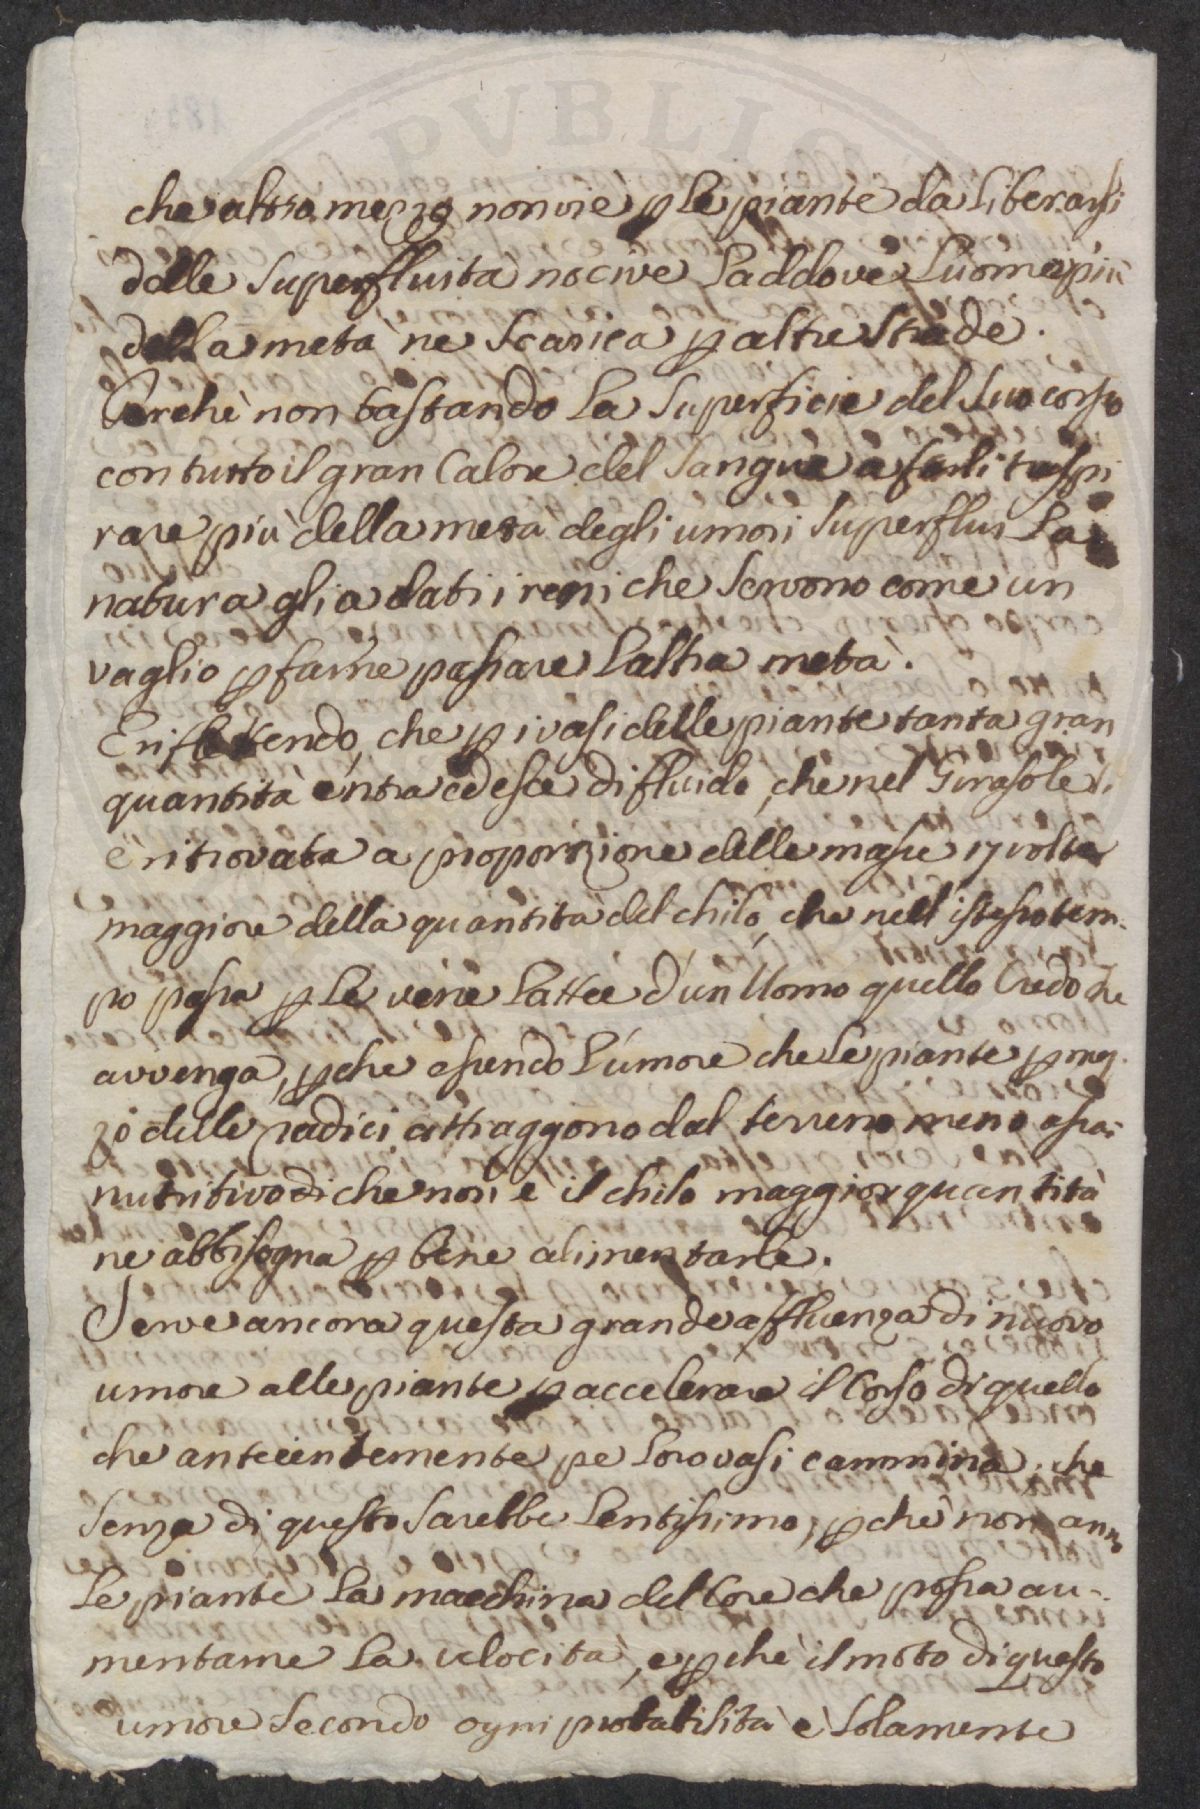 che altro mezzo non vie p le piante da liberarsi
dalle superfluità nocive laddove l'uomo più
della metà ne scarica p altre strade.
Perchè non bastando la superficie del suo corpo
con tutto il gran calore del sangue a farli traspi
rare più della metà degli umori superflui la
natura gli a dati i reni che servono come un
vaglio p farne passare l'altra metà.
E riflettendo, che p i vasi delle piante tanta gran
quantità entra ed esce di fluido, che nel Girasole si
è ritrovata a proporzione delle masse 17 volte
maggiore della quantità del chilo, che nell'istesso tem-
po passa p le vene lattee d'un Uomo quello credo che
avvenga, pche essendo l'umore che le piante p mez-
zo delle radici attraggono dal terreno meno assai
nutritivo di che non è il chilo maggior quantità
ne abbisogna p bene alimentarle.
Serve ancora questa grande affluenza di nuovo
umore alle piante p accelerare il corso di quello
che antecentemente pe loro vasi cammina, che
senza di questo sarebbe lentissimo, pchè non anno
le piante la macchina del Core che possa au-
mentarne la velocità, e pchè il moto di questo
umore secondo ogni probabilità è solamente